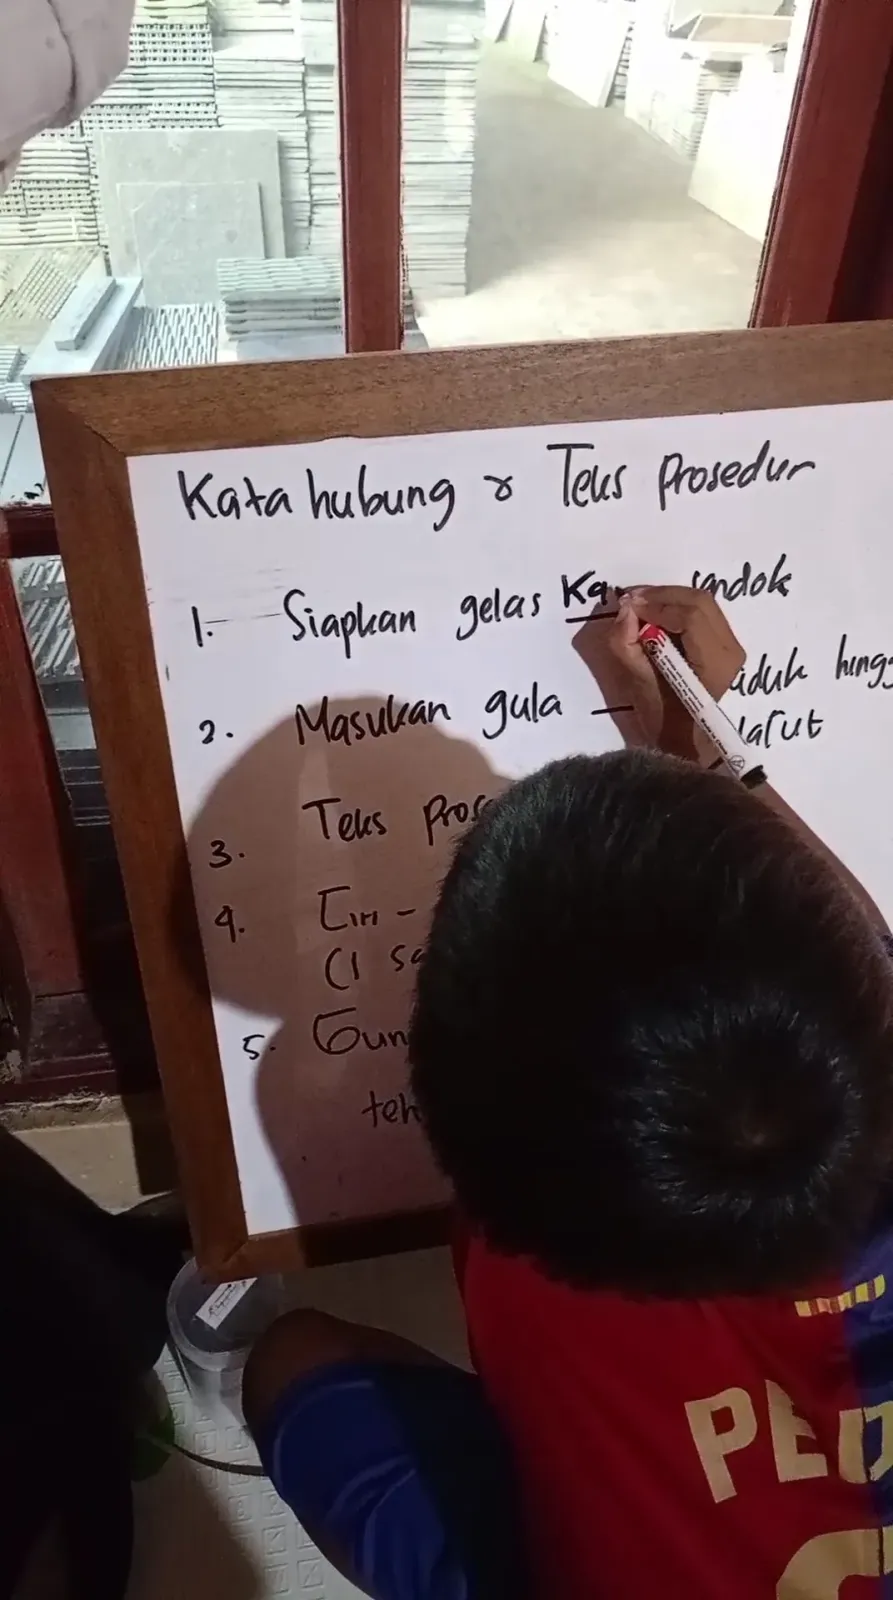 Kata hubung & Teks Prosedur
1. Siapkan gelas Ka sendok
2. Masukan gula — aduk hingg
larut
3. Teks pros
4. Ciri -
(1 sa
5. Gun
teh
PED